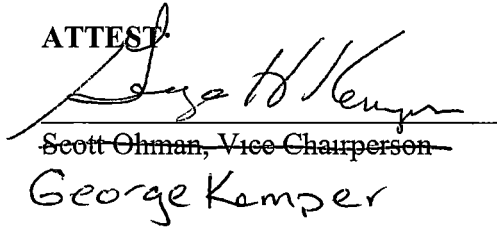 ATTEST:
George H Kemper
Scott Ohman, Vice Chairperson
George Kemper